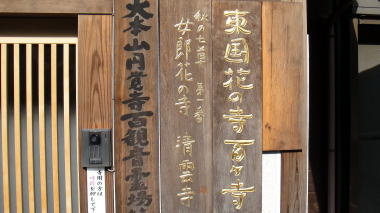 東国花の寺百ヶ寺
秋の七草 第一番
女郎花の寺 清雲寺
大本山円覚寺百観音霊場